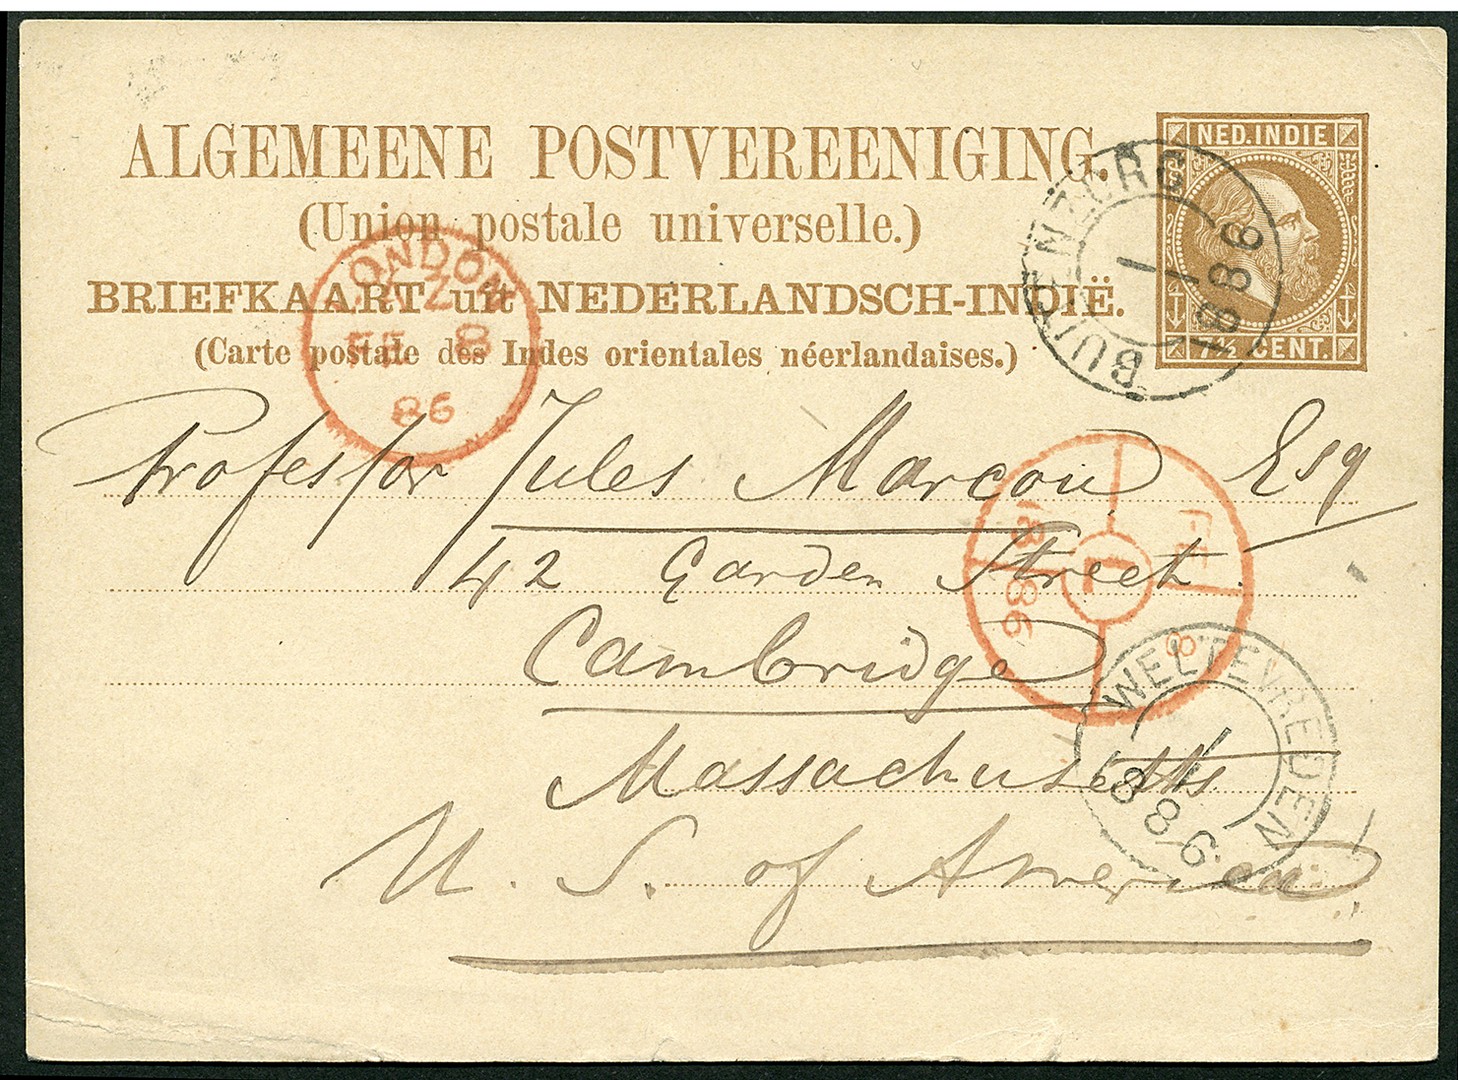 ALGEMEENE POSTVEREENIGING.
(Union postale universelle.)
BRIEFKAART uit NEDERLANDSCH-INDIË.
(Carte postale des Indes orientales néerlandaises.)
NED. INDIE
7½ CENT.
BUITENZORG
1 1
1886
LONDON
FE 8
86
Professor Jules Marcou Esq
42 Garden Street
Cambridge
Massachusetts
U. S. of America
L
FE
8
18 86
WELTEVREDEN
1 1
1886